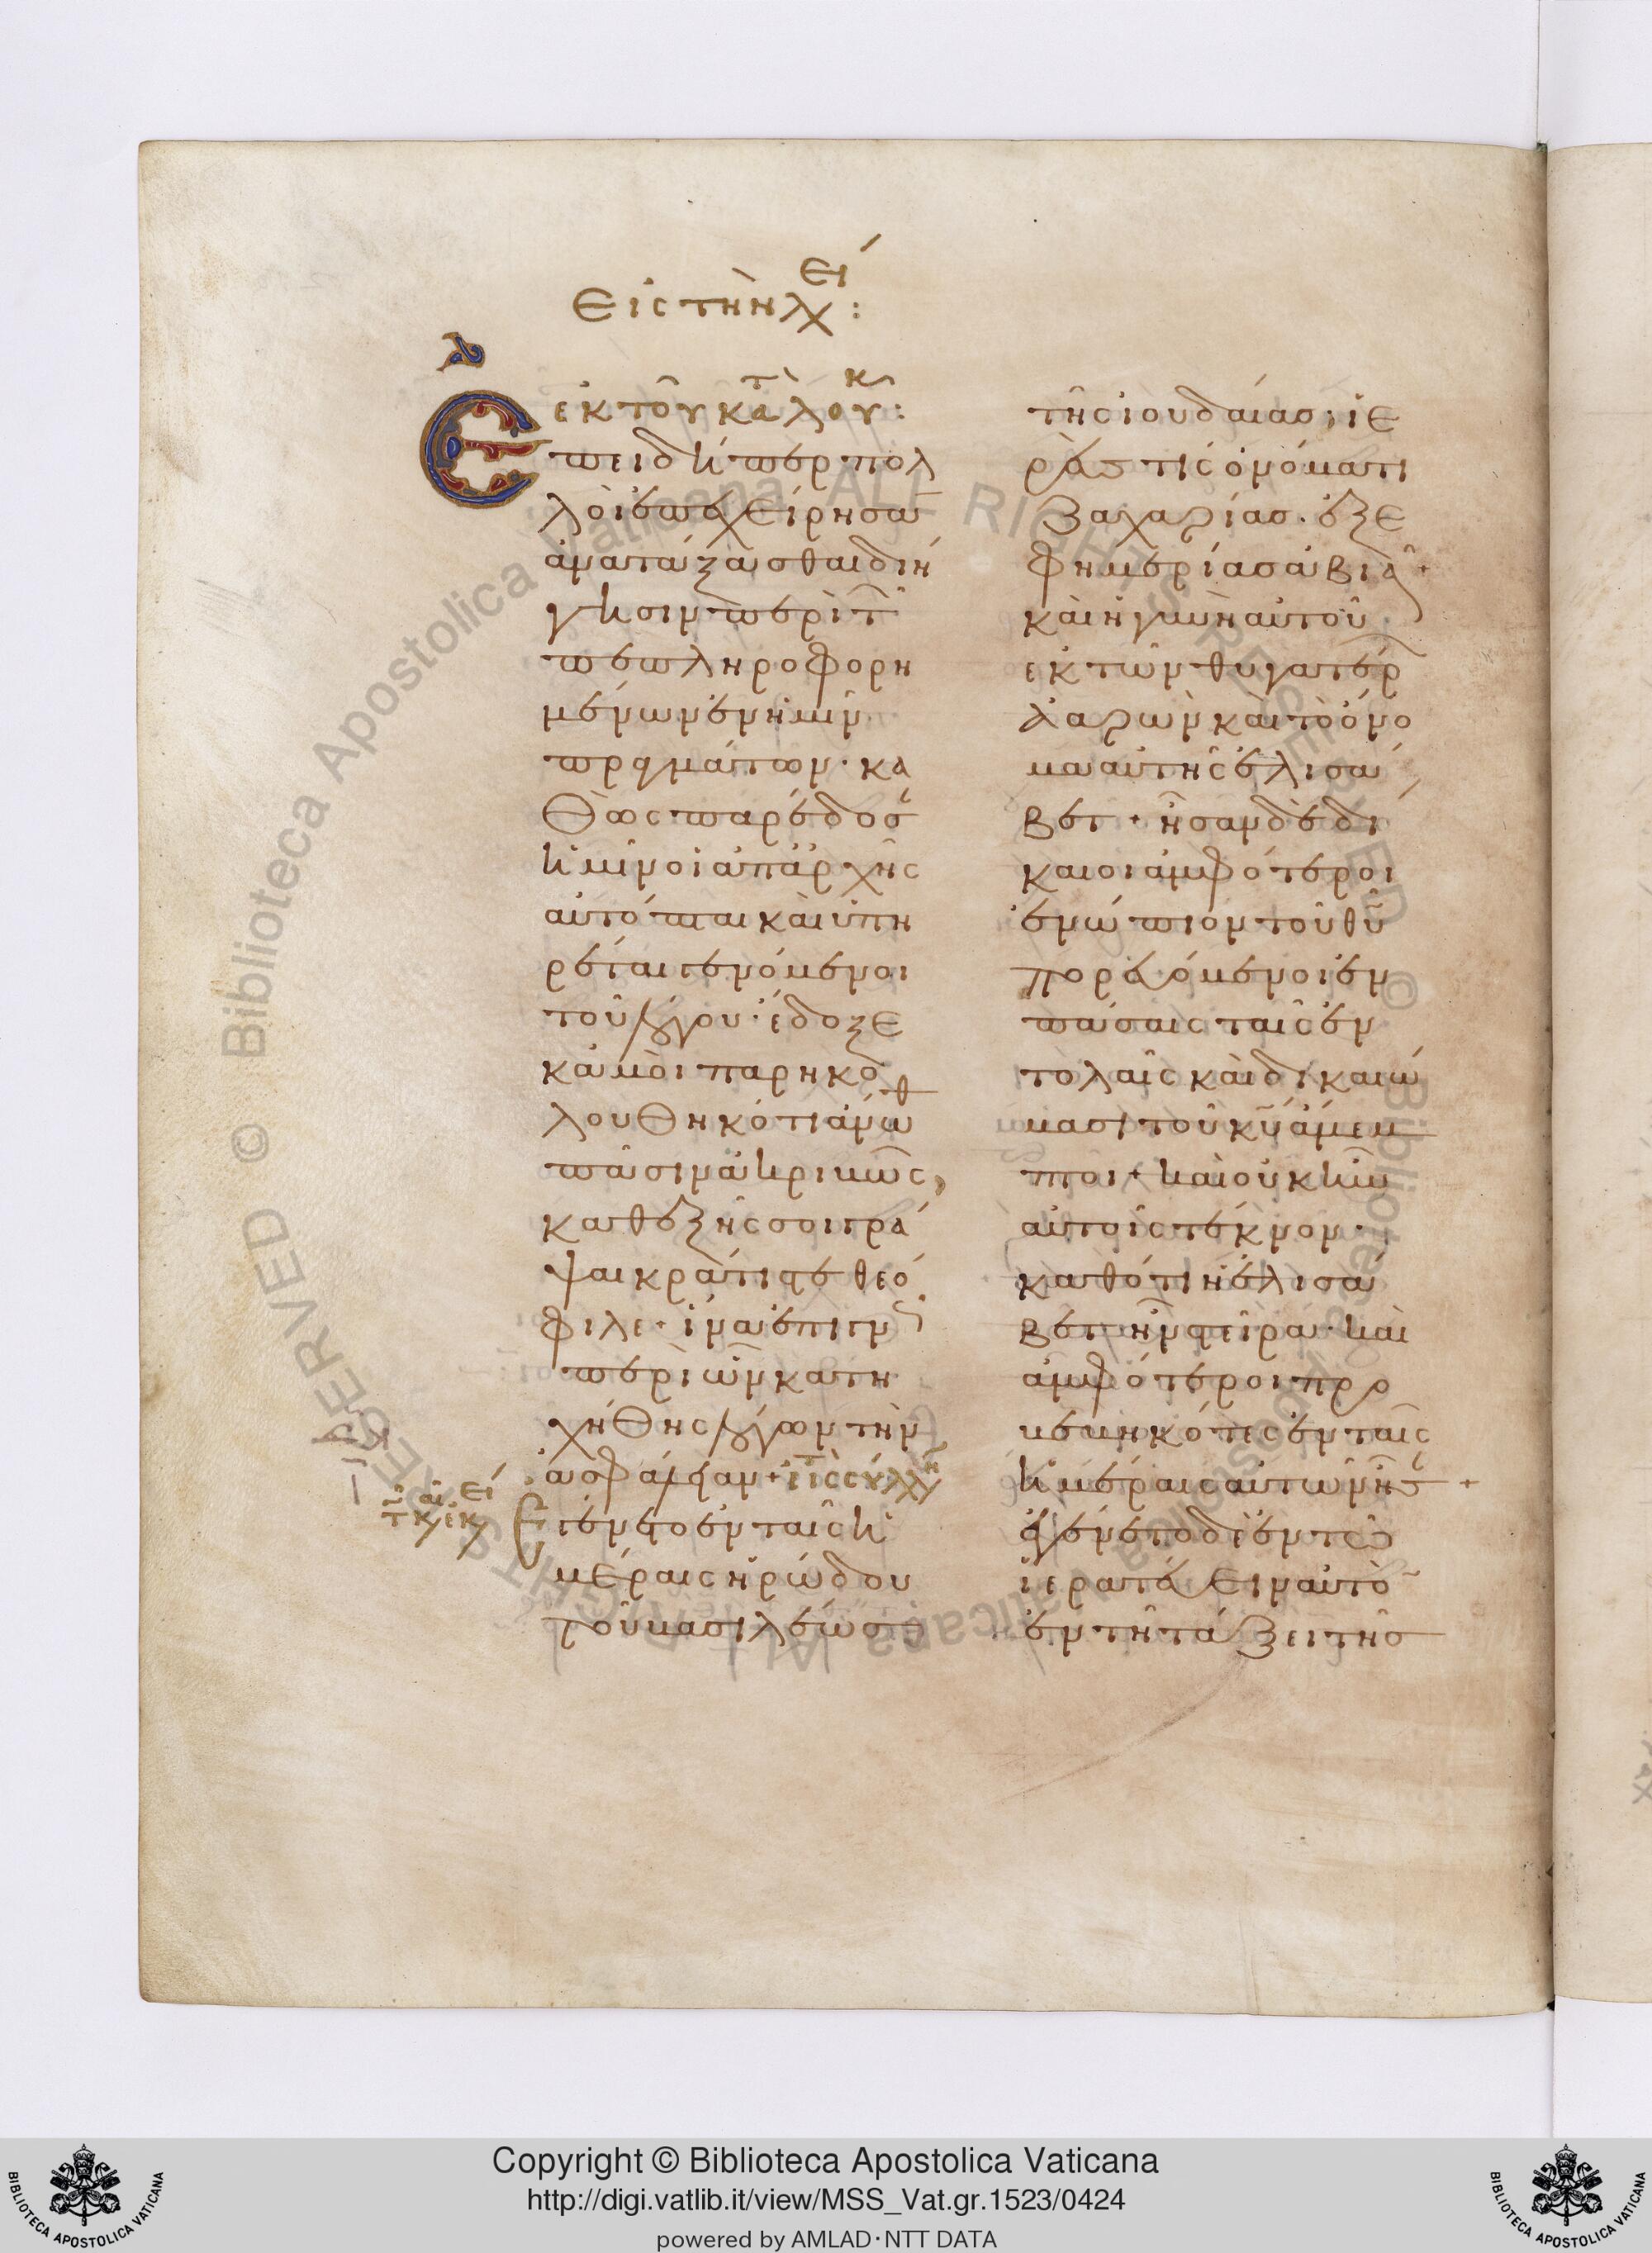 Εἰς τὴν λχ ει:
ἐκ του κα τ λου κ:
Ἐπειδήπερ πολ
λοὶ ἐπεχείρησαν
ἀναταξασθαι διή
γησιν περὶ τ
πεπληροφορη
μένων ἐν ἡμῖν
πραγμάτων · κα
θὼς παρέδοσ
ἡμῖν οἱ ἀπαρχῆς
αὐτόπται καὶ ὑπη
ρέται γενόμενοι
τοῦ λόγου · ἔδοξε
κἀμοὶ παρηκο
λουθηκότι ἄνωθ
πᾶσιν ἀκριβῶς,
καθεξῆς σοι γρά
ψαι κράτιστε θεό
φιλε · ἵνα ἐπιγν
περὶ ὧν κατη
χήθης λόγων τὴν
ἀσφάλειαν + εἰς σύλλη
Ἐγένετο ἐν ταῖς ἡ
μέραις ἡρώδου
τοῦ βασιλέως
τῆς ἰουδαίας, ἱε
ρεύς τις ὀνόματι
Ζαχαρίας · ἐξ ἐ
φημερίας ἀβιά ·
καὶ ἡ γυνὴ αὐτοῦ
ἐκ τῶν θυγατέρ
ἀαρὼν καὶ τὸ ὄνο
μα αὐτῆς ἐλισά
βετ · ἦσαν δὲ δί
καιοι ἀμφότεροι
ἐνώπιον τοῦ θυ
πορευόμενοι ἐν
πάσαις ταῖς ἐν
τολαῖς καὶ δικαιώ
μασι τοῦ κυ ἄμεμ
πτοι · καὶ οὐκ ἦν
αὐτοῖς τέκνον ·
καθότι ἡ ἐλισά
βετ ἦν στεῖρα · καὶ
ἀμφότεροι προ
βεβηκότες ἐν ταῖς
ἡμέραις αὐτῶν ἦσ +
ἐγένετο δὲ ἐν τῶ
ἱερατεύειν αὐτὸ
ἐν τῆ τάξει τῆς
© Biblioteca Apostolica Vaticana ALL RIGHTS RESERVED © Biblioteca Apostolica Vaticana ALL RIGHTS RESERVED
Copyright © Biblioteca Apostolica Vaticana
http://digi.vatlib.it/view/MSS_Vat.gr.1523/0424
powered by AMLAD·NTT DATA
BIBLIOTECA APOSTOLICA VATICANA
BIBLIOTECA APOSTOLICA VATICANA